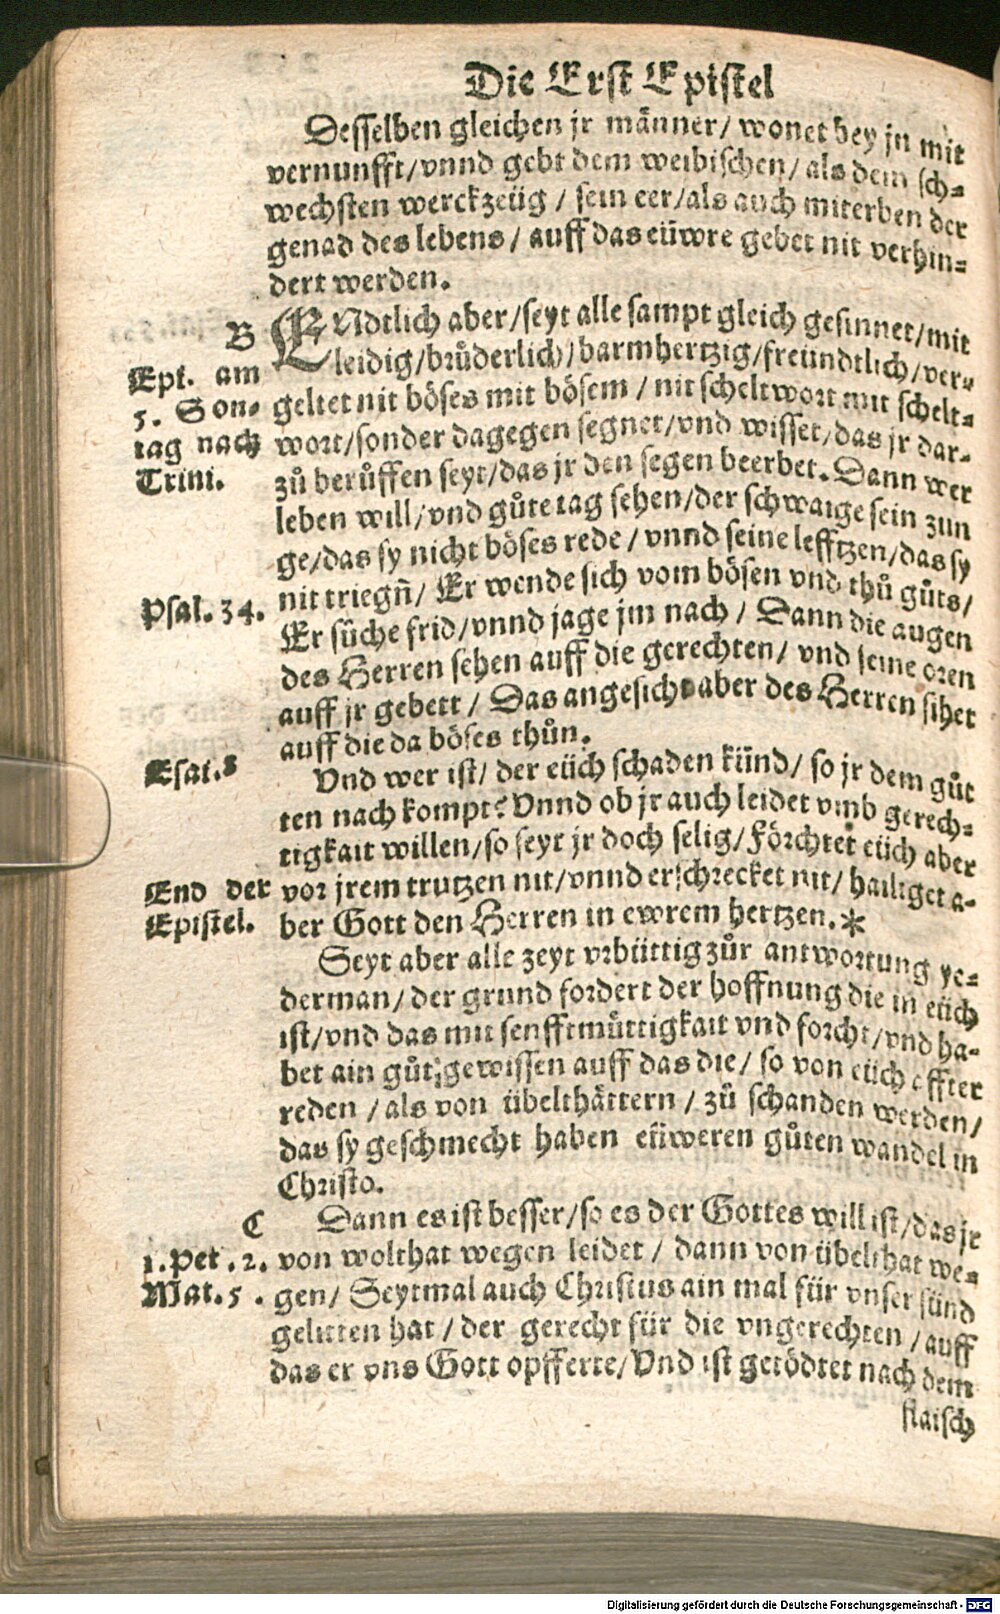 Die Erst Epistel
Desselben gleichen jr männer/ wonet bey jn mit
vernunfft/vnnd gebt dem weibischen/ als dem sch-
wechsten werckzeüg / sein eer/als auch miterben der
genad des lebens / auff das eüwre gebet nit verhin-
dert werden.
B
ENdtlich aber/seyt alle sampt gleich gesinnet/mit
leidig/brůderlich/barmhertzig/freündtlich/ver-
geltet nit böses mit bösem / nit scheltwort mit schelt-
wort/sonder dagegen segnet/vnd wisset/das jr dar-
zů berůffen seyt/das jr den segen beerbet. Dann wer
leben will/vnd gůte tag sehen/der schwaige sein zun
ge/das sy nicht böses rede / vnnd seine lefftzen/das sy
nit triegñ/ Er wende sich vom bösen vnd thů gůts/
Er sůche frid/vnnd jage jm nach / Dann die augen
des Herren sehen auff die gerechten/ vnd seine oren
auff jr gebett / Das angesicht aber des Herren sihet
auff die da böses thůn.
Ept. am
5. Son-
tag nach
Trini.
Psal. 34.
Vnd wer ist/ der eüch schaden künd/ so jr dem gůt
ten nach kompt? Vnnd ob jr auch leidet vmb gerech-
tigkait willen/so seyt jr doch selig/Förchtet eüch aber
vor jrem trutzen nit/vnnd erschrecket nit/ hailiget a-
ber Gott den Herren in ewrem hertzen.*
Esai.8
End der
Epistel.
Seyt aber alle zeyt vrbüttig zůr antwortung ye-
derman/ der grund fordert der hoffnung die in eüch
ist/vnd das mit senfftmůttigkait vnd forcht/vnd ha-
bet ain gůt gewissen auff das die/ so von eüch affter
reden / als von übelthättern / zů schanden werden/
das sy geschmecht haben eüweren gůten wandel in
Christo.
C
Dann es ist besser/so es der Gottes will ist/das jr
von wolthat wegen leidet / dann von übelthat we-
gen/ Seytmal auch Christus ain mal für vnser sünd
gelitten hat / der gerecht für die vngerechten / auff
das er vns Gott opfferte/ Vnd ist getödtet nach dem
1. Pet. 2.
Mat. 5.
flaisch
Digitalisierung gefördert durch die Deutsche Forschungsgemeinschaft - DFG